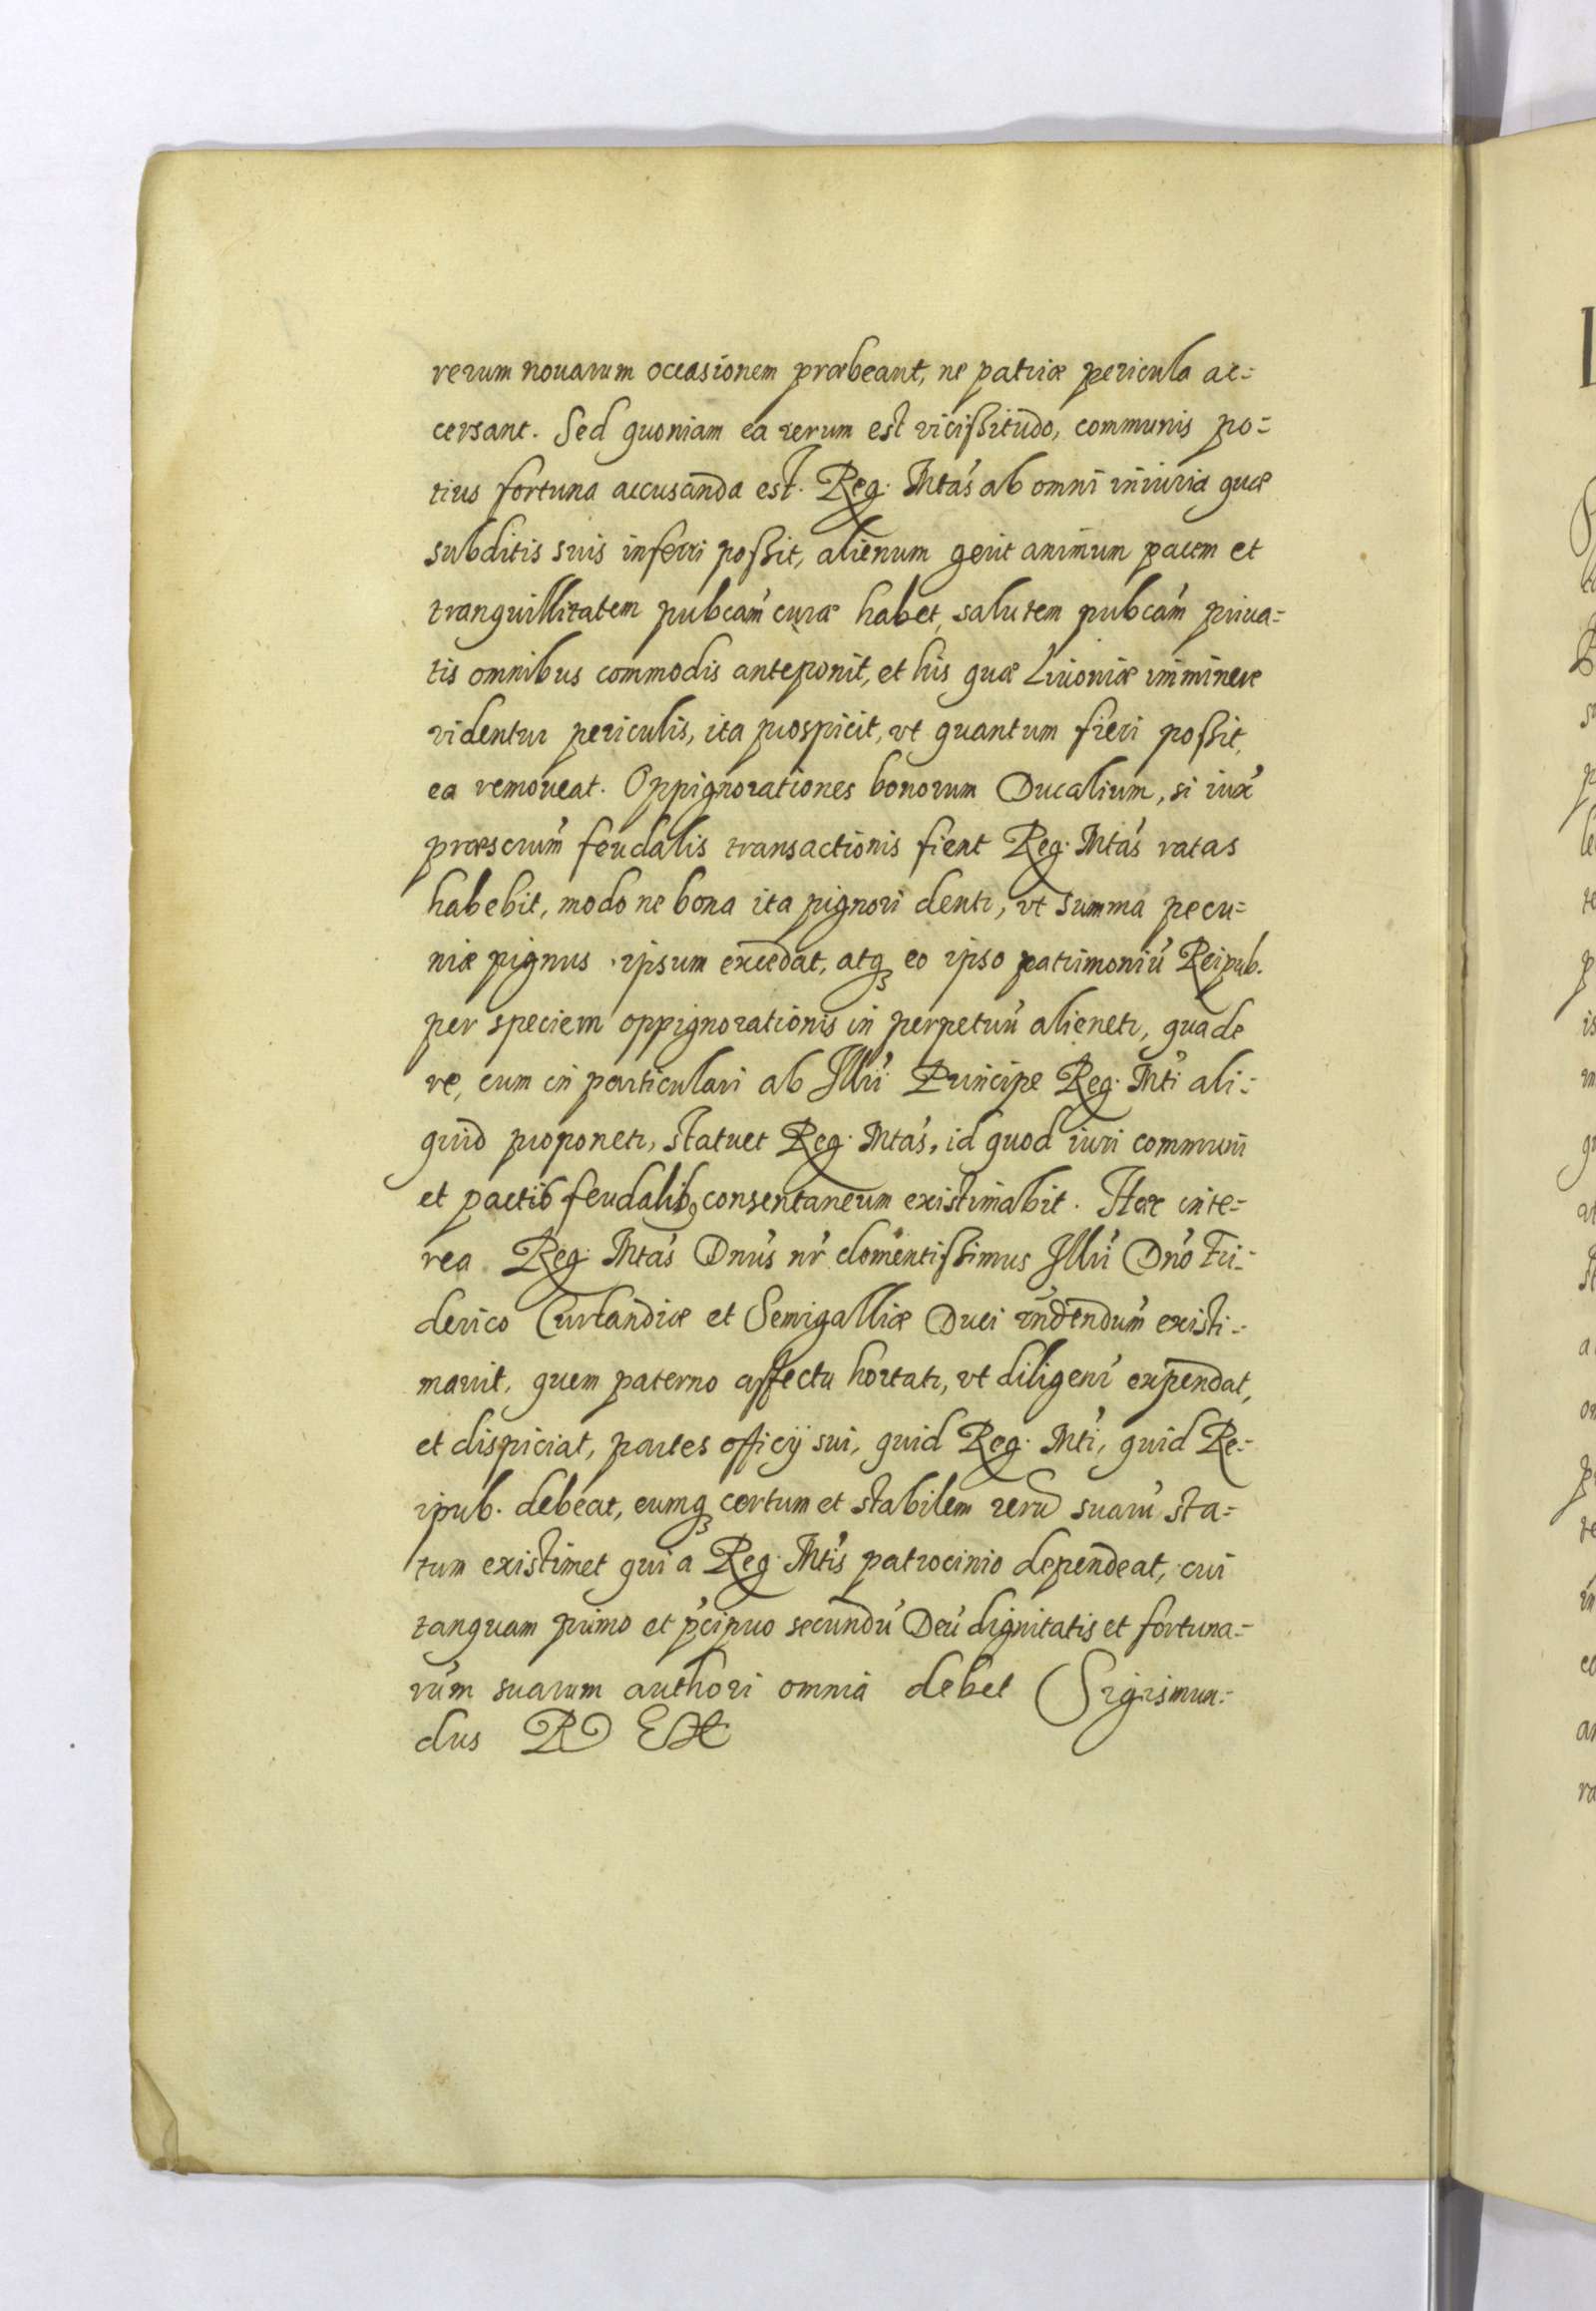 rerum nouarum occasionem præbeant, ne patriæ pericula ac-
cersant. Sed quoniam ea rerum est vicissitudo, communis po-
tius fortuna accusanda est. Reg. Mtas ab omni iniuria quæ
subditis suis inferri possit, alienum gerit animum pacem et
tranquillitatem pubcam curæ habet, salutem pubcam priua-
tis omnibus commodis anteponit, et his quæ Liuoniæ imminere
videntur periculis, ita prospicit, vt quantum fieri possit,
ea remoueat. Oppignorationes bonorum Ducalium, si iux
præscrum feudalis transactionis fient Reg. Mtas ratas
habebit, modo ne bona ita pignori dentr, vt summa pecu-
niæ pignus ipsum excedat, atq eo ipso patrimoniu Reipub.
per speciem oppignorationis in perpetuu alienetr, qua de
re, cum in particulari ab Illri Principe Reg. Mti ali-
quid proponetr, statuet Reg. Mtas, id quod iuri communi
et pactib feudalib consentaneum existimabit. Hæc inte-
rea Reg. Mtas Dnus nr clementissimus Illri Dno Fri-
derico Curlandiæ et Semigalliæ Duci rndendum existi-
mauit, quem paterno affectu hortatr, vt diligenr expendat,
et dispiciat, partes officij sui, quid Reg. Mti, quid Re-
ipub. debeat, eumq certum et stabilem reru suaru sta-
tum existimet qui a Reg. Mtis patrocinio dependeat, cui
tanquam primo et pcipuo secundu Deu dignitatis et fortuna-
rum suarum authori omnia debet Sigismun-
dus